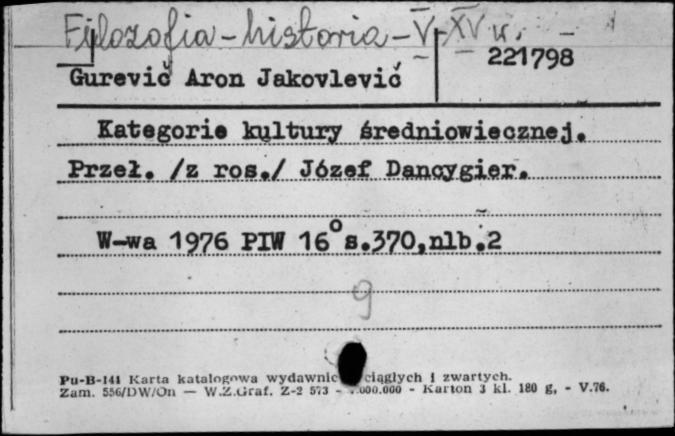 Filozofia – historia – V-XV w.
221798
Gurevič Aron Jakovlevič
Kategorie kultury średniowiecznej.
Przeł. /z ros./ Józef Dancygier.
W-wa 1976 PIW 16° s.370,nlb.2
9
Pu-B-141 Karta katalogowa wydawnic ciągłych i zwartych.
Zam. 556/DW/On — W.Z.Graf. Z-2 573 - .000.000 - Karton 3 kl. 180 g, - V.76.